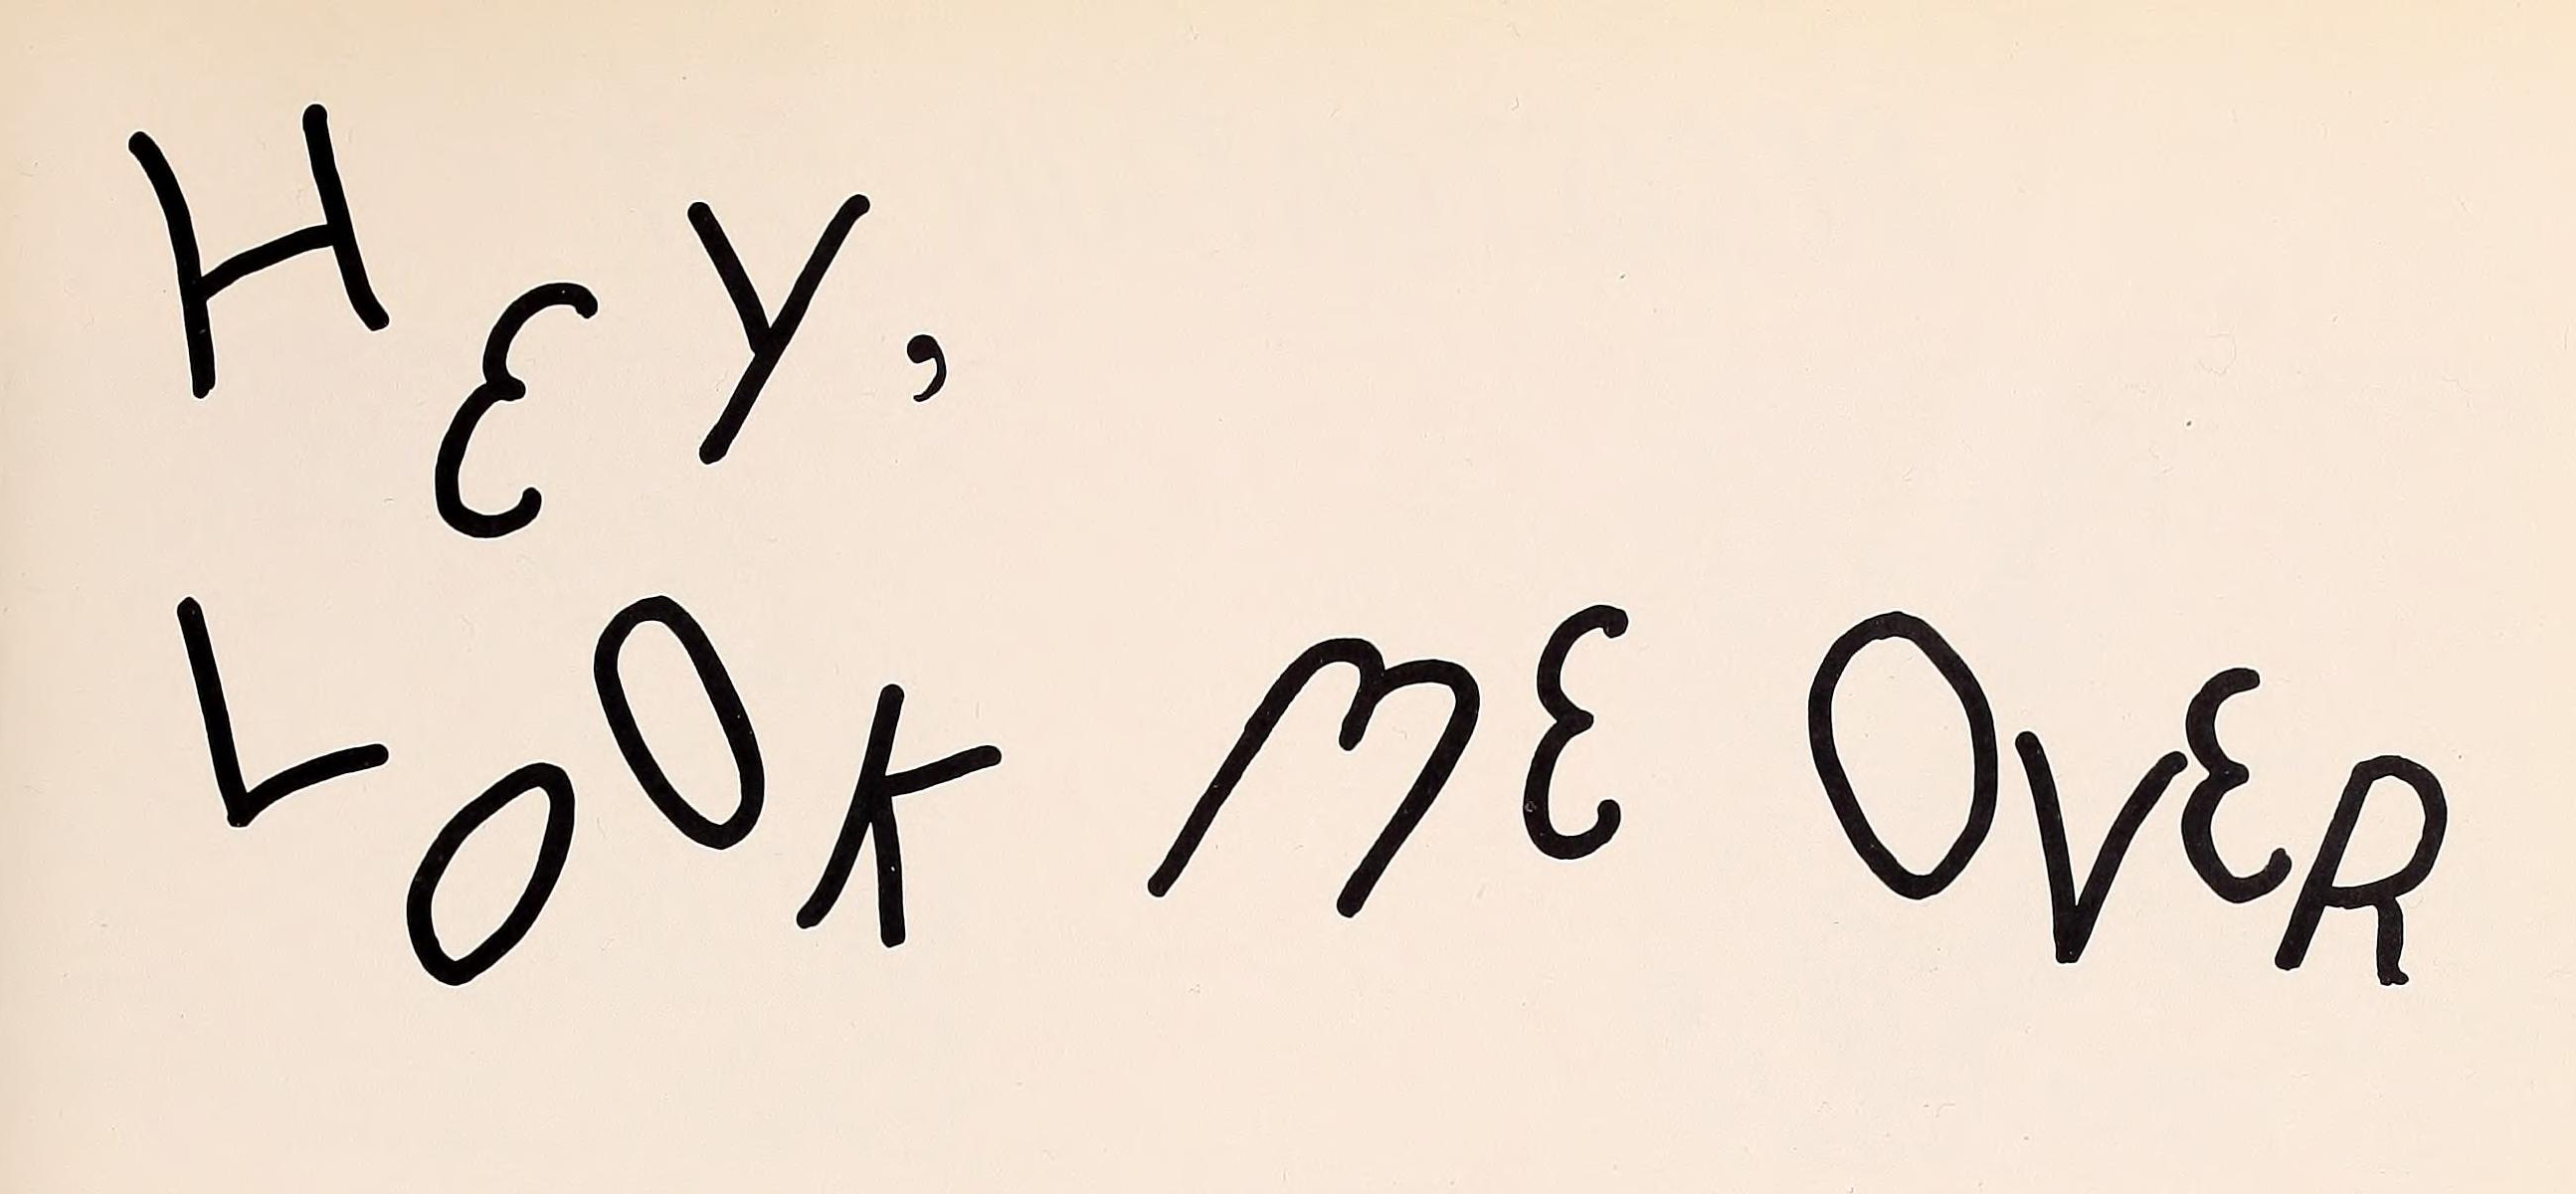 HEY,
LOOK ME OVER